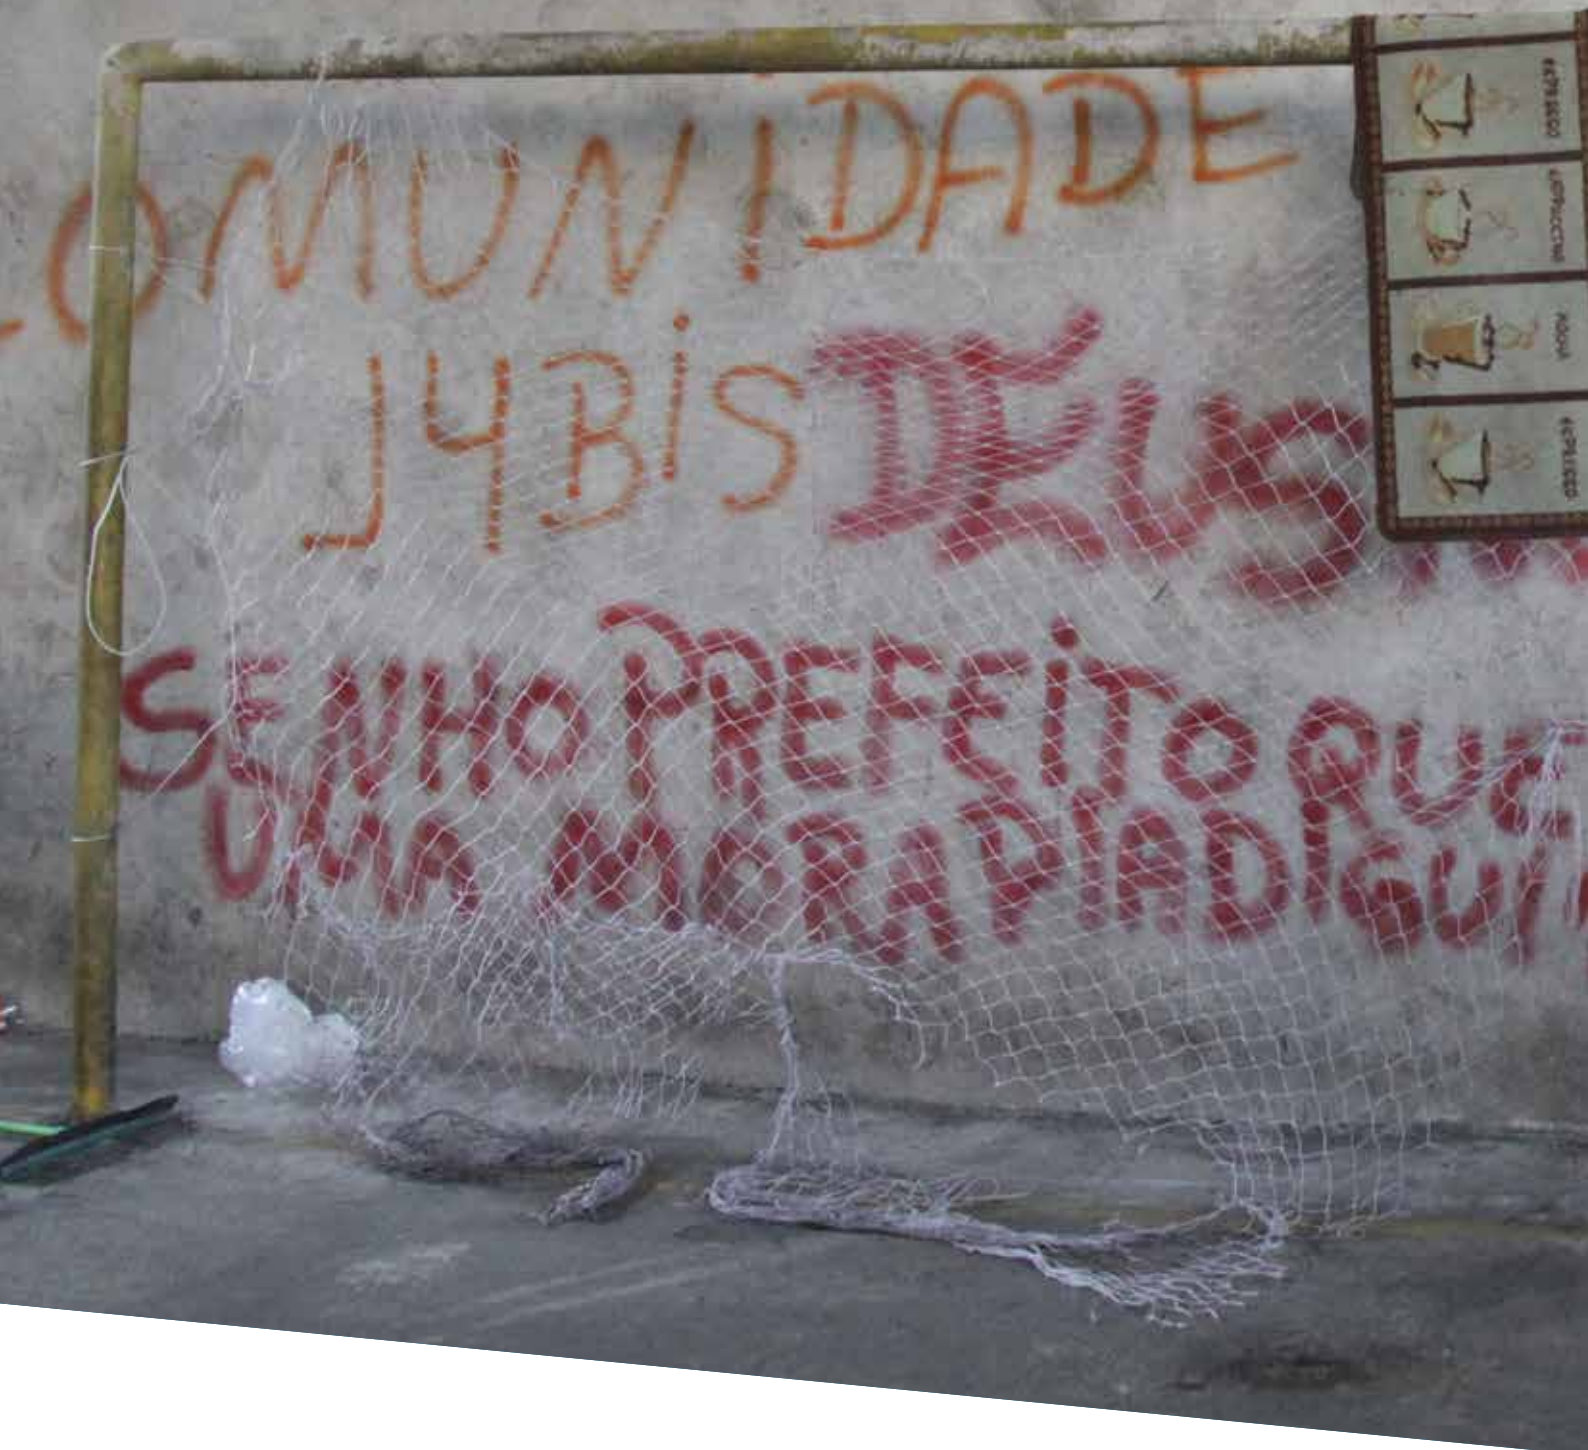 COMUNIDADE
J4BiS DEUS
SENHO PREFEiTO QUE
UMA MORAPIADIGUI
EXPRESSO
CAPPUCCINO
AQUI
EXPRESSO